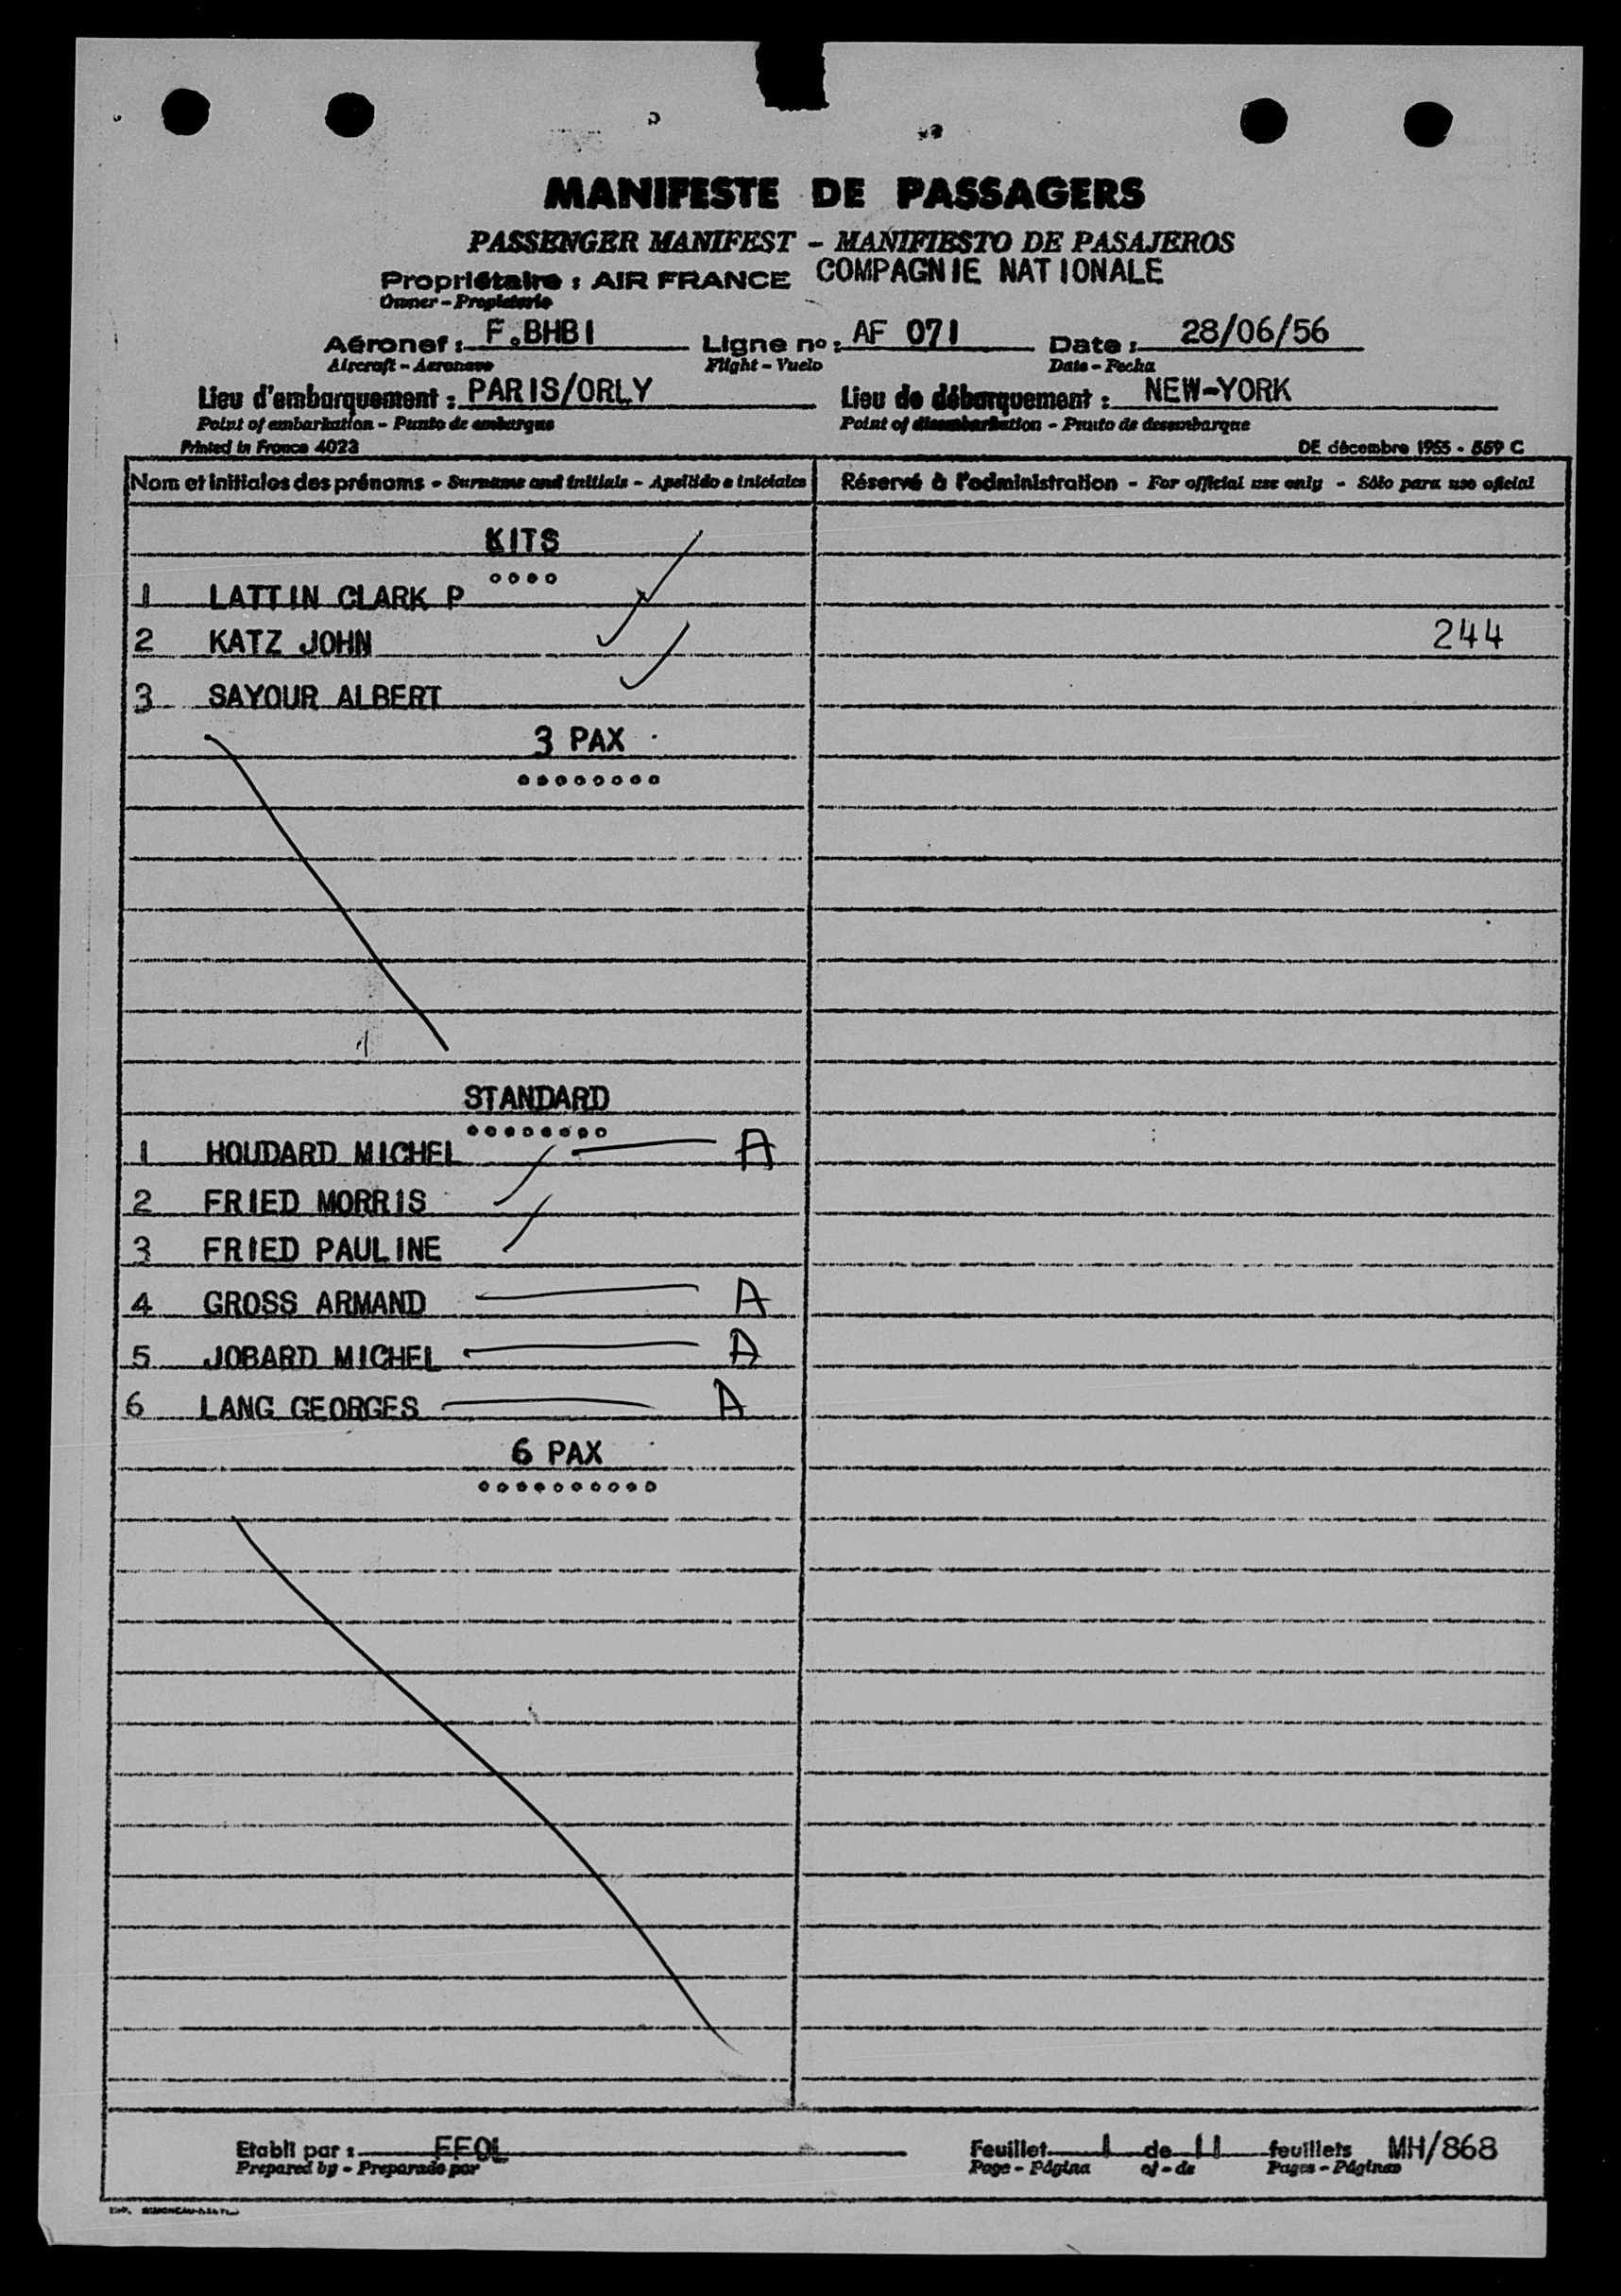 MANIFESTE DE PASSAGERS
PASSENGER MANIFEST - MANIFIESTO DE PASAJEROS
Propriétaire : AIR FRANCE COMPAGNIE NATIONALE
Owner - Propietario
Aéronef : F.BHBI Ligne no : AF 071 Date : 28/06/56
Aircraft - Aeronave Flight - Vuelo Date - Fecha
Lieu d'embarquement : PARIS/ORLY Lieu de débarquement : NEW-YORK
Point of embarkation - Punto de embarque Point of disembarkation - Punto de desembarque
Printed in France 4023 DE décembre 1955 - 559 C
Nom et initiales des prénoms - Surname and initials - Apellido e iniciales Réservé à l'administration - For official use only - Sólo para uso oficial
KITS
1 LATTIN CLARK P
2 KATZ JOHN 244
3 SAYOUR ALBERT
3 PAX
STANDARD
1 HOUDARD MICHEL A
2 FRIED MORRIS
3 FRIED PAULINE
4 GROSS ARMAND A
5 JOBARD MICHEL A
6 LANG GEORGES A
6 PAX
Etabli par : EEOL Feuillet 1 de 11 feuillets MH/868
Prepared by - Preparado por Page - Página of - de Pages - Páginas